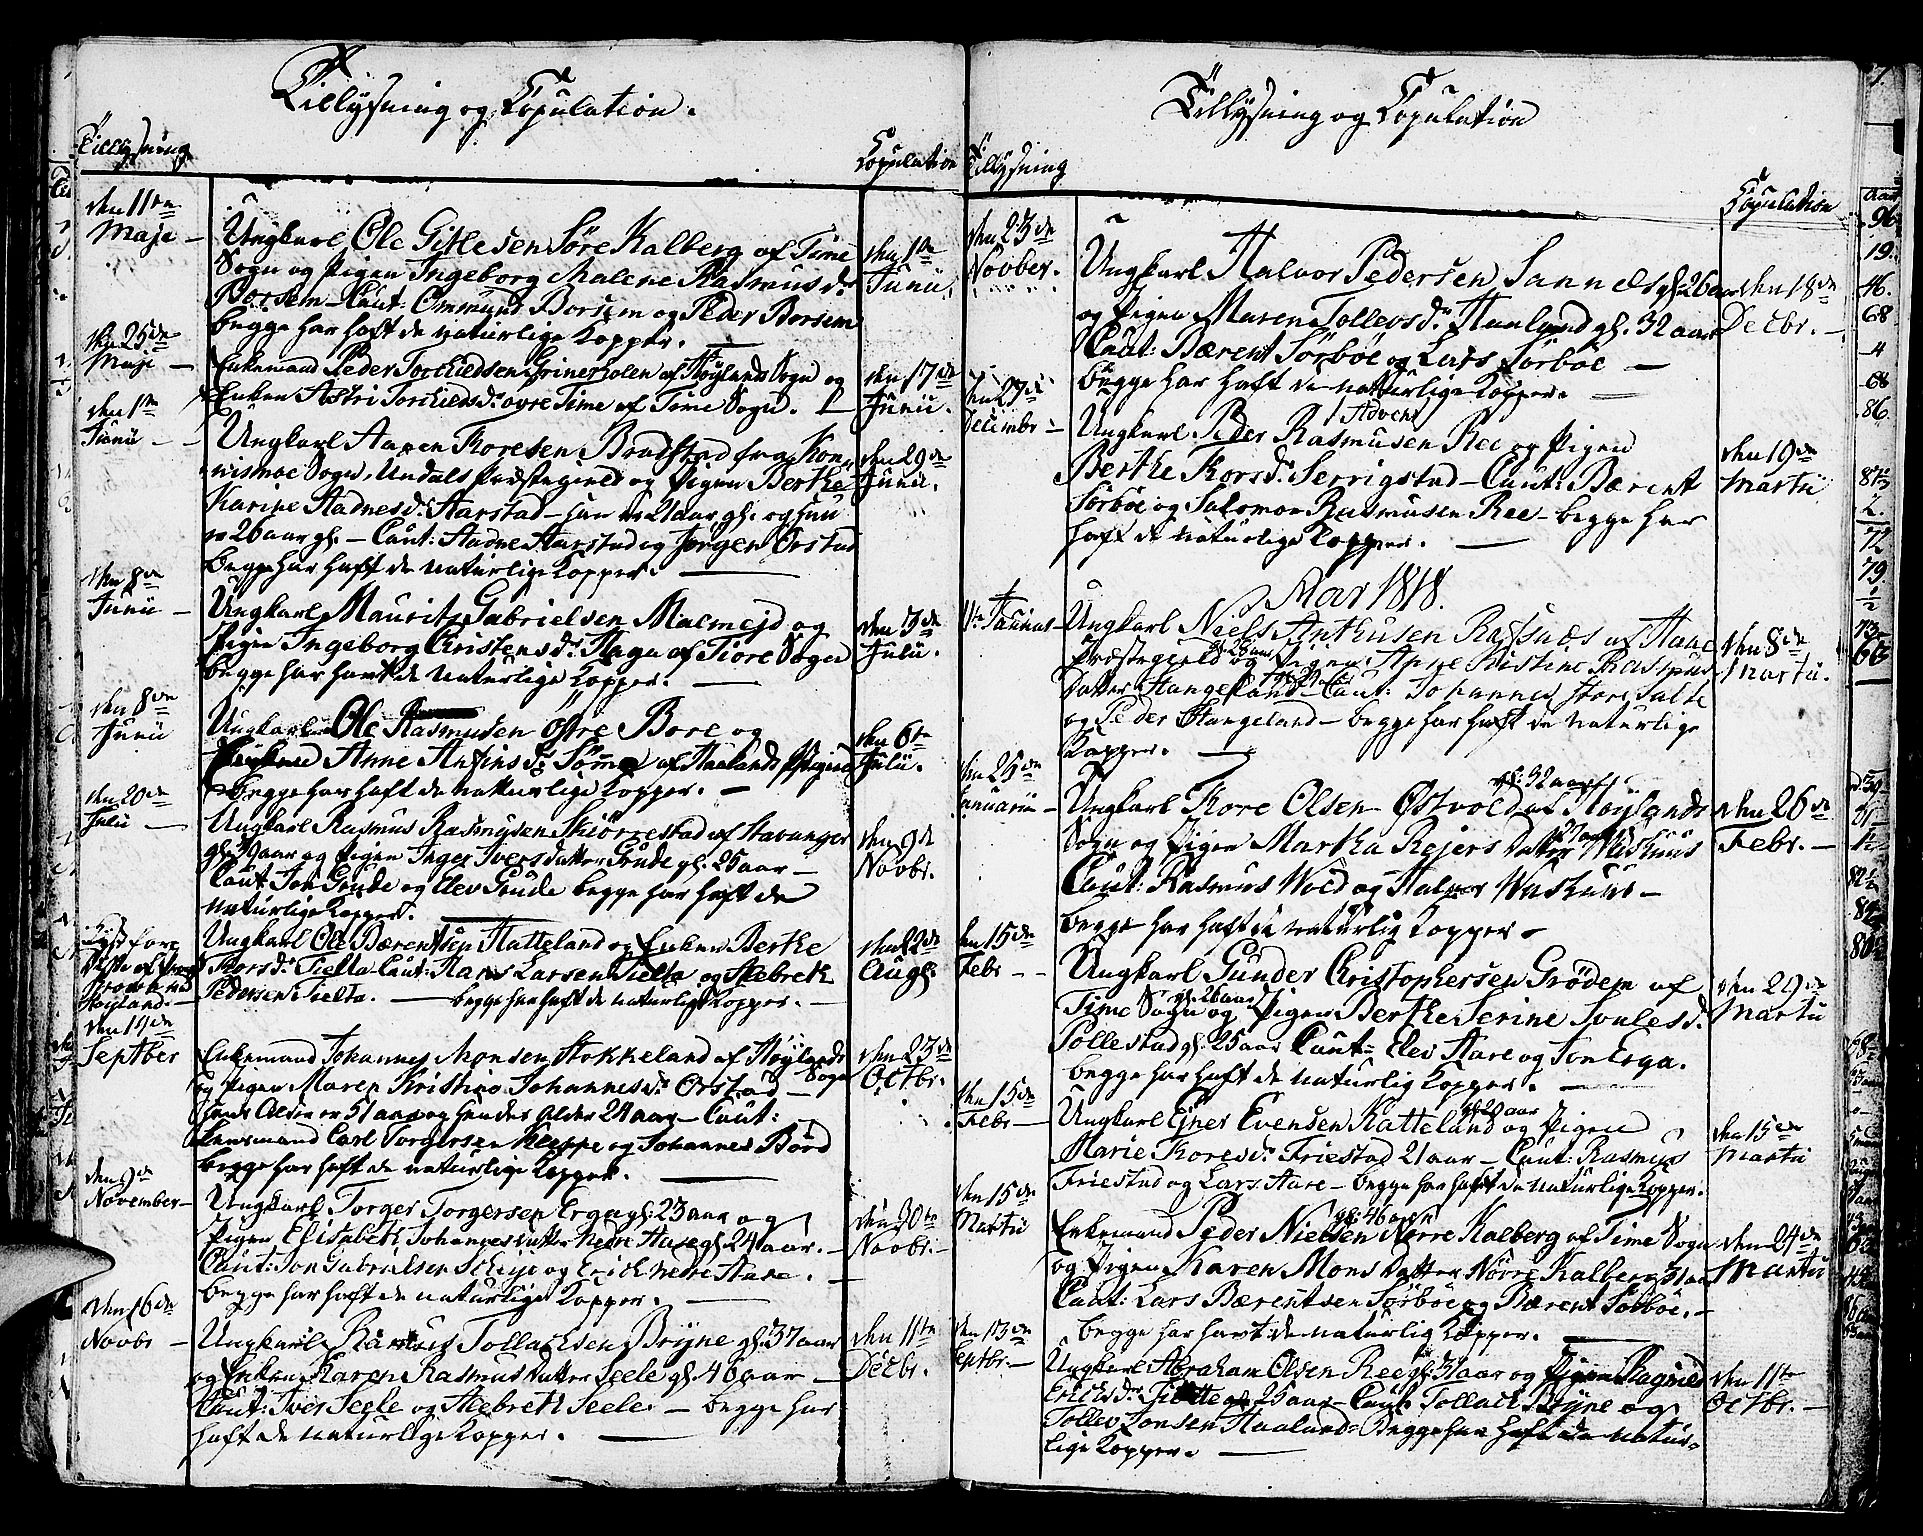 Tillysning og Copulation.
Tillysning
Copulation
den 11te Maje –
Ungkarl Ole Gitlesen Søre Kalberg af Time
Sogn og Pigen Ingeborg Malene Rasmusd:
Borsem – Caut: Ommund Borsem og Peder Borsem
begge har haft de naturlige Kopper. –
den 1te Junii.
den 25de Maje –
Enkemand Peder Torkildsen af Høylands Sogn og
Enken Astri Torkildsd: øvre Time af Time Sogn. –
den 17de Junii.
den 1te Junii –
Ungkarl Aanen Koresen Bradstad fra Kon-
nismoe Sogn, Undals Præstegield og Pigen Berthe
Karine Aadnesd: Aarstad – han er 21 aar gl. og hun
er 26 aar gl. – Caut: Aadne Aarstad og Jørgen Orstad
begge har haft de naturlige Kopper. –
den 29de Junii.
den 8de Junii –
Ungkarl Mauritz Gabrielsen Malmejd og
Pigen Ingeborg Christensd: Haga af Tiore Sogn
begge har havt de naturlige Kopper. –
den 3de Julii.
den 8de Junii
Ungkarl Ole Rasmusen Østre Bore og
Anne Anfinsd: Sømme af Haalands
begge har haft de naturlige Kopper. –
den 6te Julii.
den 20de Julii –
Ungkarl Rasmus Rasmusen Skiørrestad af Stavanger
gl. aar og Pigen Inger Iversdatter Grude gl. 25 aar –
Caut: Jon Grude og Elev Grude begge har haft de
naturlige Kopper. –
den 9de Novbr.
Høyland. –
Ungkarl Ole Bærentsen Hatteland og Enken Berthe
Thorsd: Tielta – Caut: Hans Larsen Tielta og Aslebrek
Pedersen Tielta. – begge har haft de naturlige Kopper. –
den 22de Aug:
den 14de Septber
Enkemand Johannes Monsen Stokkeland af Høylands
Sogn
og Pigen Maren Kristina Johannesd: Orstad –
hans Alder er 51 aar og hendes Alder 24 aar – Caut:
Lensmand Carl Torgersen Kleppe og Johannes Bord
begge har haft de naturlige Kopper. –
den 23de Octbr.
den 9de November –
Ungkarl Torger Torgersen Erga gl: 23 aar og
Pigen Elisabeth Johannesdatter nedre Aase gl 24 aar. –
Caut: Jon Gabrielsen Scheje og Erich nedre Aase. –
begge har haft de naturlige Kopper. –
den 30te Novbr. –
den 16de Novbr –
Ungkarl Rasmus Tollachsen Bryne gl: 37 aar
og Enken Karen Rasmusdatter Seele gl. 46 aar –
Caut: Iver Seele og Aslebreth Seele – begge har
haft de naturlige Kopper. –
den 11te Decbr.
Tillysning og Copulation
Tillysning
Copulation
den 23de Novber.
Ungkarl Halvor Pedersen Sannes gl: 26 aar
og Pigen Maren Tollevsd: Haaland gl. 32 aar
Caut: Bærent Sørbøe og Lars Sørbøe –
begge har haft de naturlige Kopper. –
den 18de Decbr. –
Decimbr –
Advent
Ungkarl Peder Rasmusen Ree og Pigen
Berthe Korsd: Serrigstad – Caut: Bærent
Sørbøe og Salomon Rasmusen Ree – begge har
haft de naturlige Kopper. –
den 19de Martii
Aar 1818.
Ungkarl Niels Anthusen af Haae
gl 28 aar
Præstegield og Pigen Anne Kistine Rasmus-
Datter Hangeland – Caut: Johannes Store Salte
og Peder Hangeland – begge har haft de naturlige
Kopper. –
den 8de Martii.
den 25de Januarii –
gl: 32 aar
Ungkarl Kore Olsen Østvold af Høylands
27 aar
Sogn og Pigen Martha Rejers Datter Washuus
Caut: Rasmus Wold og Halvor Washuus –
begge har haft de naturlig Kopper –
den 26de Febr. –
den 15de Febr –
Ungkarl Gunder Christophersen Grødem af
gl 26 aar
Time Sogn og Pigen Berthe Serine Soulesd:
Pollestad gl. 25 aar Caut: Elev Aare og Jon Erga.
begge har haft de naturlig Kopper. –
den 29de Martii
den 15de Febr –
gl 29 aar
Ungkarl Ejner Evensen Hatteland og Pigen
Marie Koresd: Friestad 21 aar – Caut: Rasmus
Friestad og Lars Aare – begge har haft de naturlige Kopper.
den 15de Martii
den 15de Martii
gl: 46 aar
Enkemand Peder Nielsen Nørre Kalberg af Time Sogn
og Pigen Karen Mons Datter Nørre Kalberg 31 aar
Caut: Lars Bærentsen Sørbøe og Bærent Sørbøe. –
begge har havt de naturlig Kopper. –
den 24de Martii
den 13de Septbr. –
Ungkarl Abraham Olsen Ree gl: 31 aar og Pigen Ragnild
Erichsd: 25 aar – Caut: Tollach Bryne og
Tollev Jonsen Haaland – Begge har haft de natur-
lige Kopper. –
den 11te Octbr. –